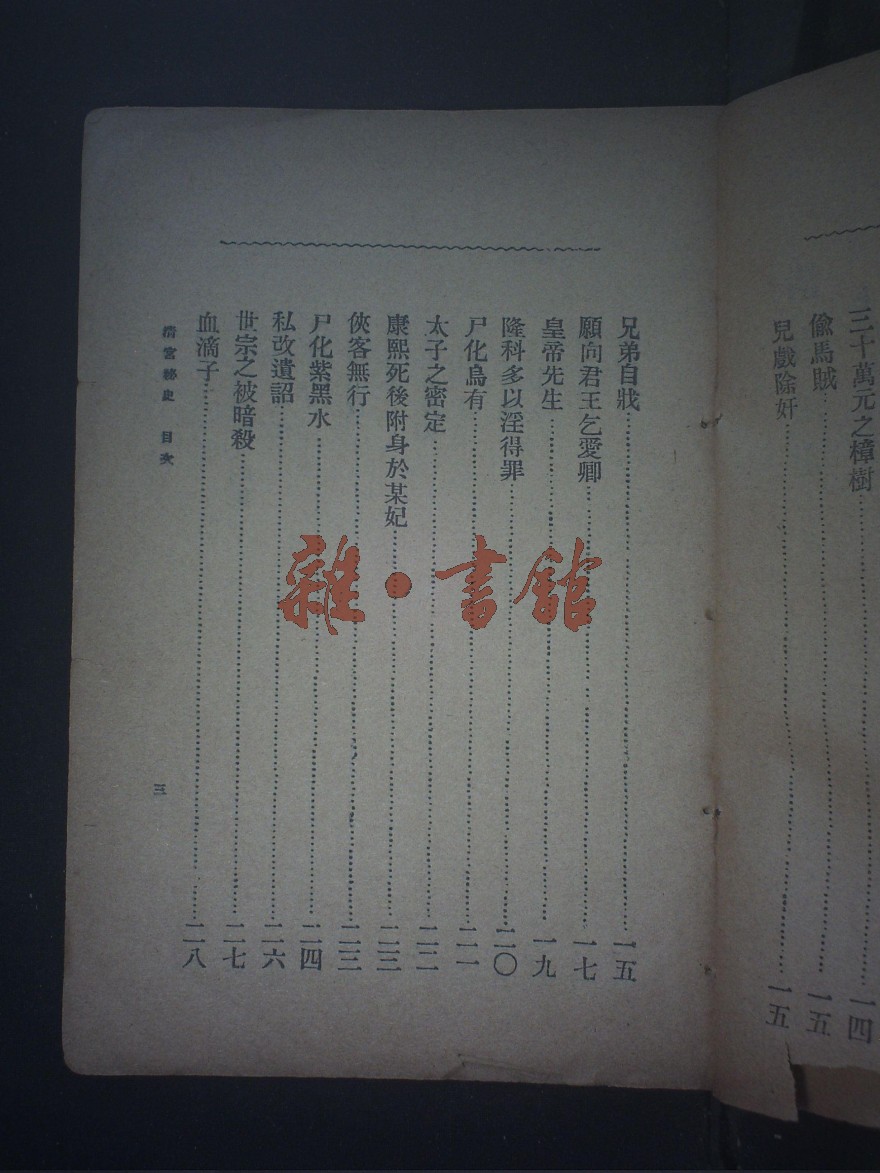 三十萬元之樟樹⋯⋯一四
偸馬賊⋯⋯一五
兒戲除奸⋯⋯一五
兄弟自戕⋯⋯一五
願向君王乞愛卿⋯⋯一七
皇帝先生⋯⋯一九
隆科多以淫得罪⋯⋯二〇
尸化烏有⋯⋯二一
太子之密定⋯⋯二二
康熙死後附身於某妃⋯⋯二三
俠客無行⋯⋯二三
尸化紫黑水⋯⋯二四
私改遺詔⋯⋯二六
世宗之被暗殺⋯⋯二七
血滴子⋯⋯二八
清宮祕史 目次 三
雜·書館